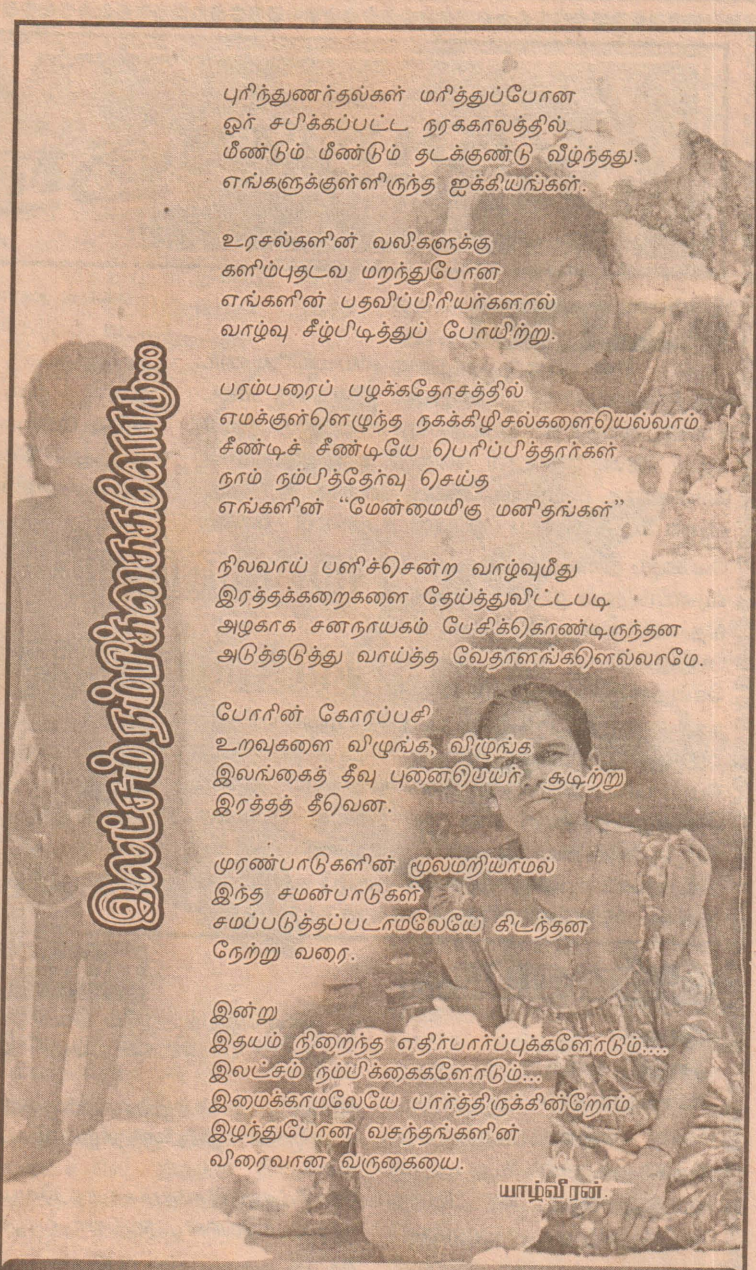 இலட்சம் நம்பிக்கைகளோடு...
புரிந்துணர்தல்கள் மரித்துப்போன
ஓர் சபிக்கப்பட்ட நரககாலத்தில்
மீண்டும் மீண்டும் தடக்குண்டு வீழ்ந்தது.
எங்களுக்குள்ளிருந்த ஐக்கியங்கள்.
உரசல்களின் வலிகளுக்கு
களிம்புதடவ மறந்துபோன
எங்களின் பதவிப்பிரியர்களால்
வாழ்வு சீழ்பிடித்துப் போயிற்று.
பரம்பரைப் பழக்கதோசத்தில்
எமக்குள்ளெழுந்த நகக்கிழிசல்களையெல்லாம்
சீண்டிச் சீண்டியே பெரிப்பித்தார்கள்
நாம் நம்பித்தேர்வு செய்த
எங்களின் “மேன்மைமிகு மனிதங்கள்”
நிலவாய் பளிச்சென்ற வாழ்வுமீது
இரத்தக்கறைகளை தேய்த்துவிட்டபடி
அழகாக சனநாயகம் பேசிக்கொண்டிருந்தன
அடுத்தடுத்து வாய்த்த வேதாளங்களெல்லாமே.
போரின் கோரப்பசி
உறவுகளை விழுங்க, விழுங்க
இலங்கைத் தீவு புனைபெயர் சூடிற்று
இரத்தத் தீவென.
முரண்பாடுகளின் மூலமறியாமல்
இந்த சமன்பாடுகள்
சமப்படுத்தப்படாமலேயே கிடந்தன
நேற்று வரை.
இன்று
இதயம் நிறைந்த எதிர்பார்ப்புக்களோடும்....
இலட்சம் நம்பிக்கைகளோடும்...
இமைக்காமலேயே பார்த்திருக்கின்றோம்
இழந்துபோன வசந்தங்களின்
விரைவான வருகையை.
யாழ்வீரன்.